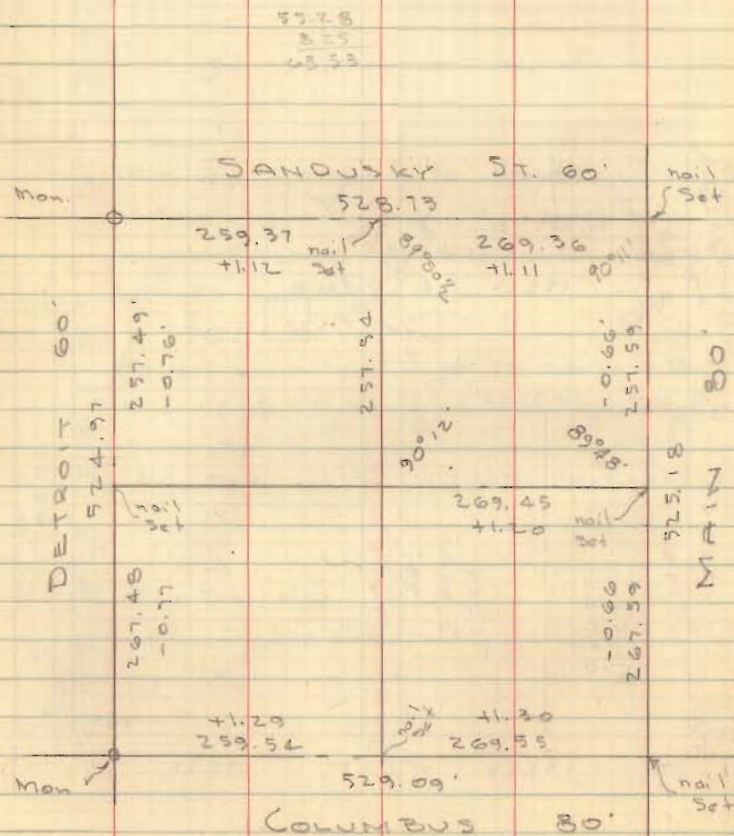 55.28
8.25
63.53
SANDUSKY ST. 60'
Mon.
528.73
nail Set
259.37
+1.12
nail Set
89°50½
269.36
+1.11
90°11'
DETROIT 60'
524.97
257.49'
-0.76'
257.54
-0.66'
257.59
MAIN 80'
525.18
90°12'
89°48'
nail Set
269.45
+1.20
nail Set
267.48
-0.77
-0.66
267.59
+1.29
259.54
nail Set
+1.30
269.55
Mon
529.09'
nail Set
COLUMBUS 80'